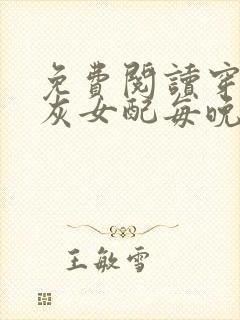 免費閱讀穿
灰女配每晚
王敏雪